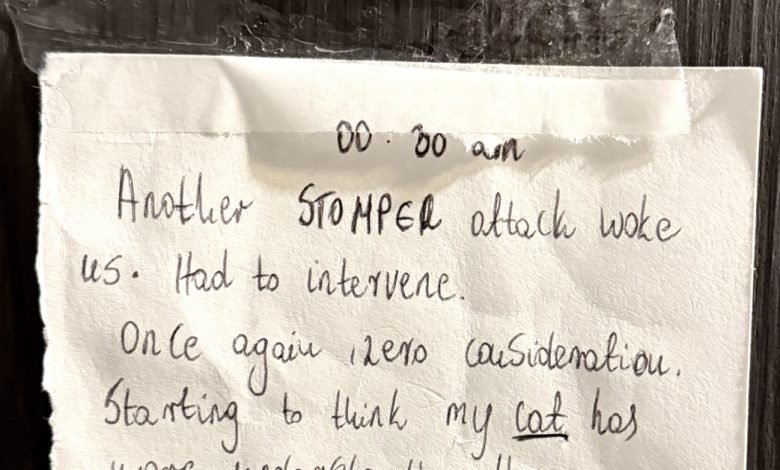 00.00 am
Another STOMPER attack woke
us. Had to intervene.
Once again, zero consideration.
Starting to think my cat has